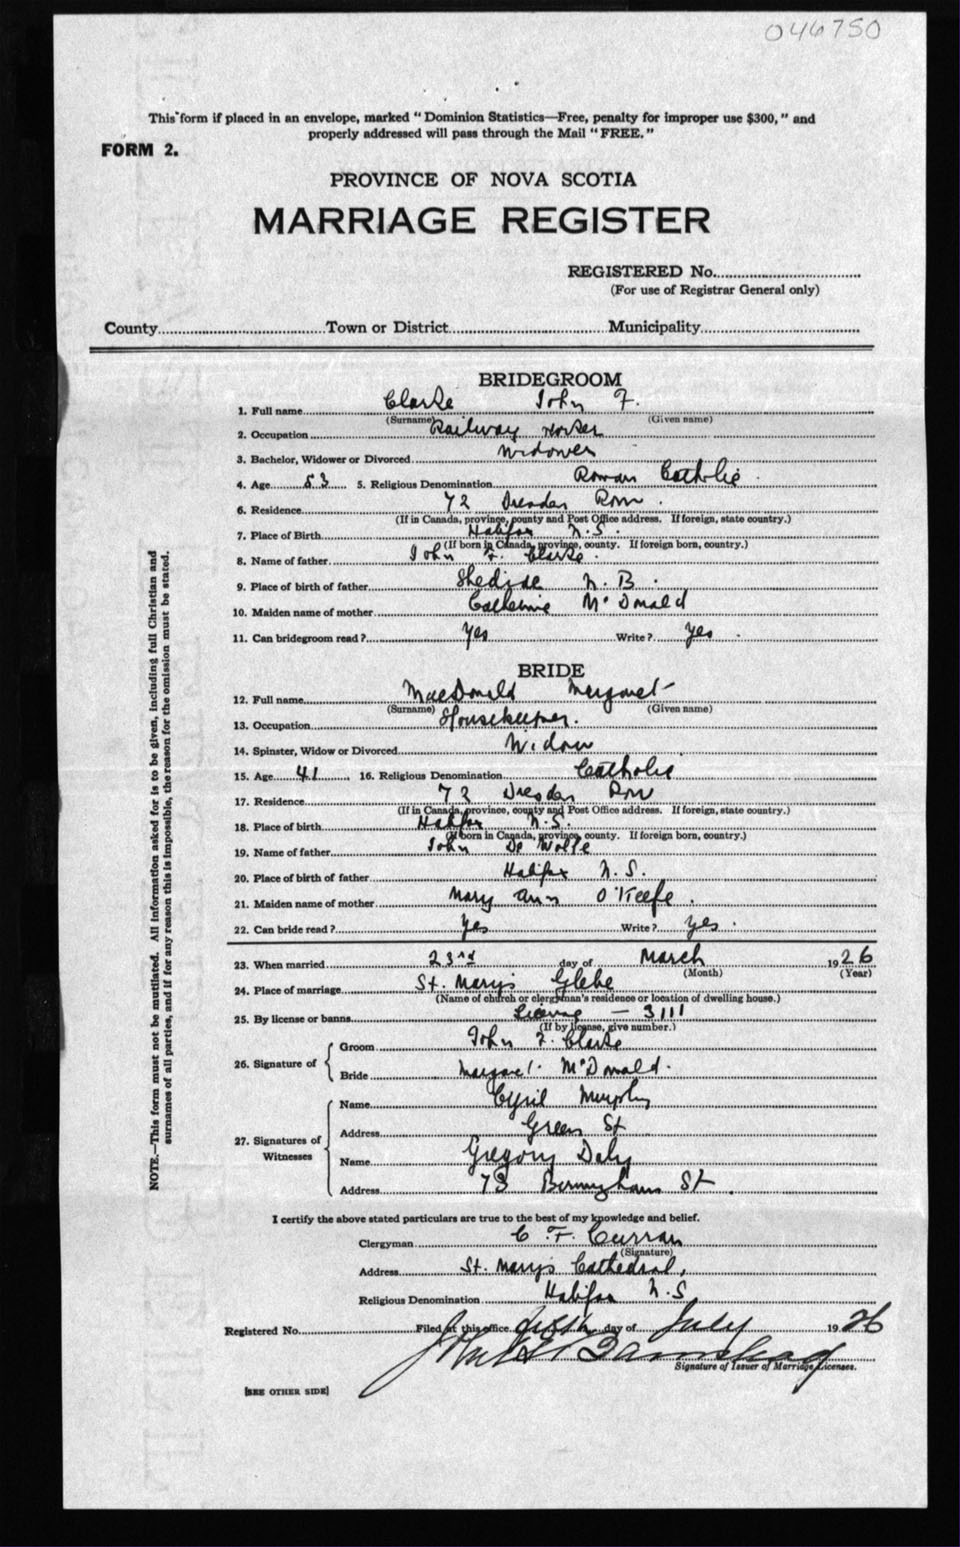 046750
This form if placed in an envelope, marked "Dominion Statistics—Free, penalty for improper use $300," and
properly addressed will pass through the Mail "FREE."
FORM 2.
PROVINCE OF NOVA SCOTIA
MARRIAGE REGISTER
REGISTERED No.
(For use of Registrar General only)
County Town or District Municipality
BRIDEGROOM
1. Full name Clarke John F.
(Surname) (Given name)
2. Occupation Railway Worker
3. Bachelor, Widower or Divorced Widower
4. Age 53 5. Religious Denomination Roman Catholic.
6. Residence 72 Dresden Row.
(If in Canada, province, county and Post Office address. If foreign, state country.)
7. Place of Birth Halifax N.S.
(If born in Canada, province, county. If foreign born, country.)
8. Name of father John F. Clarke.
9. Place of birth of father Shediac N.B.
10. Maiden name of mother Catherine McDonald
11. Can bridegroom read? Yes Write? Yes.
BRIDE
12. Full name MacDonald Margaret
(Surname) (Given name)
13. Occupation Housekeeper.
14. Spinster, Widow or Divorced Widow
15. Age 41 16. Religious Denomination Catholic
17. Residence 72 Dresden Row
(If in Canada, province, county and Post Office address. If foreign, state country.)
18. Place of birth Halifax N.S.
(If born in Canada, province, county. If foreign born, country.)
19. Name of father John De Wolfe
20. Place of birth of father Halifax N.S.
21. Maiden name of mother Mary Ann O'Keefe.
22. Can bride read? Yes Write? Yes.
23. When married 23rd day of March 1926
(Month) (Year)
24. Place of marriage St. Mary's Glebe
(Name of church or clergyman's residence or location of dwelling house.)
25. By license or banns License — 3111
(If by license, give number.)
26. Signature of
Groom John F. Clarke
Bride Margaret McDonald.
27. Signatures of Witnesses
Name Cyril Murphy
Address Green St
Name Gregory Daly
Address 73 Birmingham St.
I certify the above stated particulars are true to the best of my knowledge and belief.
Clergyman C. F. Curran
(Signature)
Address St. Mary's Cathedral,
Religious Denomination Halifax N.S.
Registered No. Filed at this office fifth day of July 1926
Signature of Issuer of Marriage Licenses.
[SEE OTHER SIDE]
NOTE.—This form must not be mutilated. All information asked for is to be given, including full Christian and
surnames of all parties, and if for any reason this is impossible, the reason for the omission must be stated.